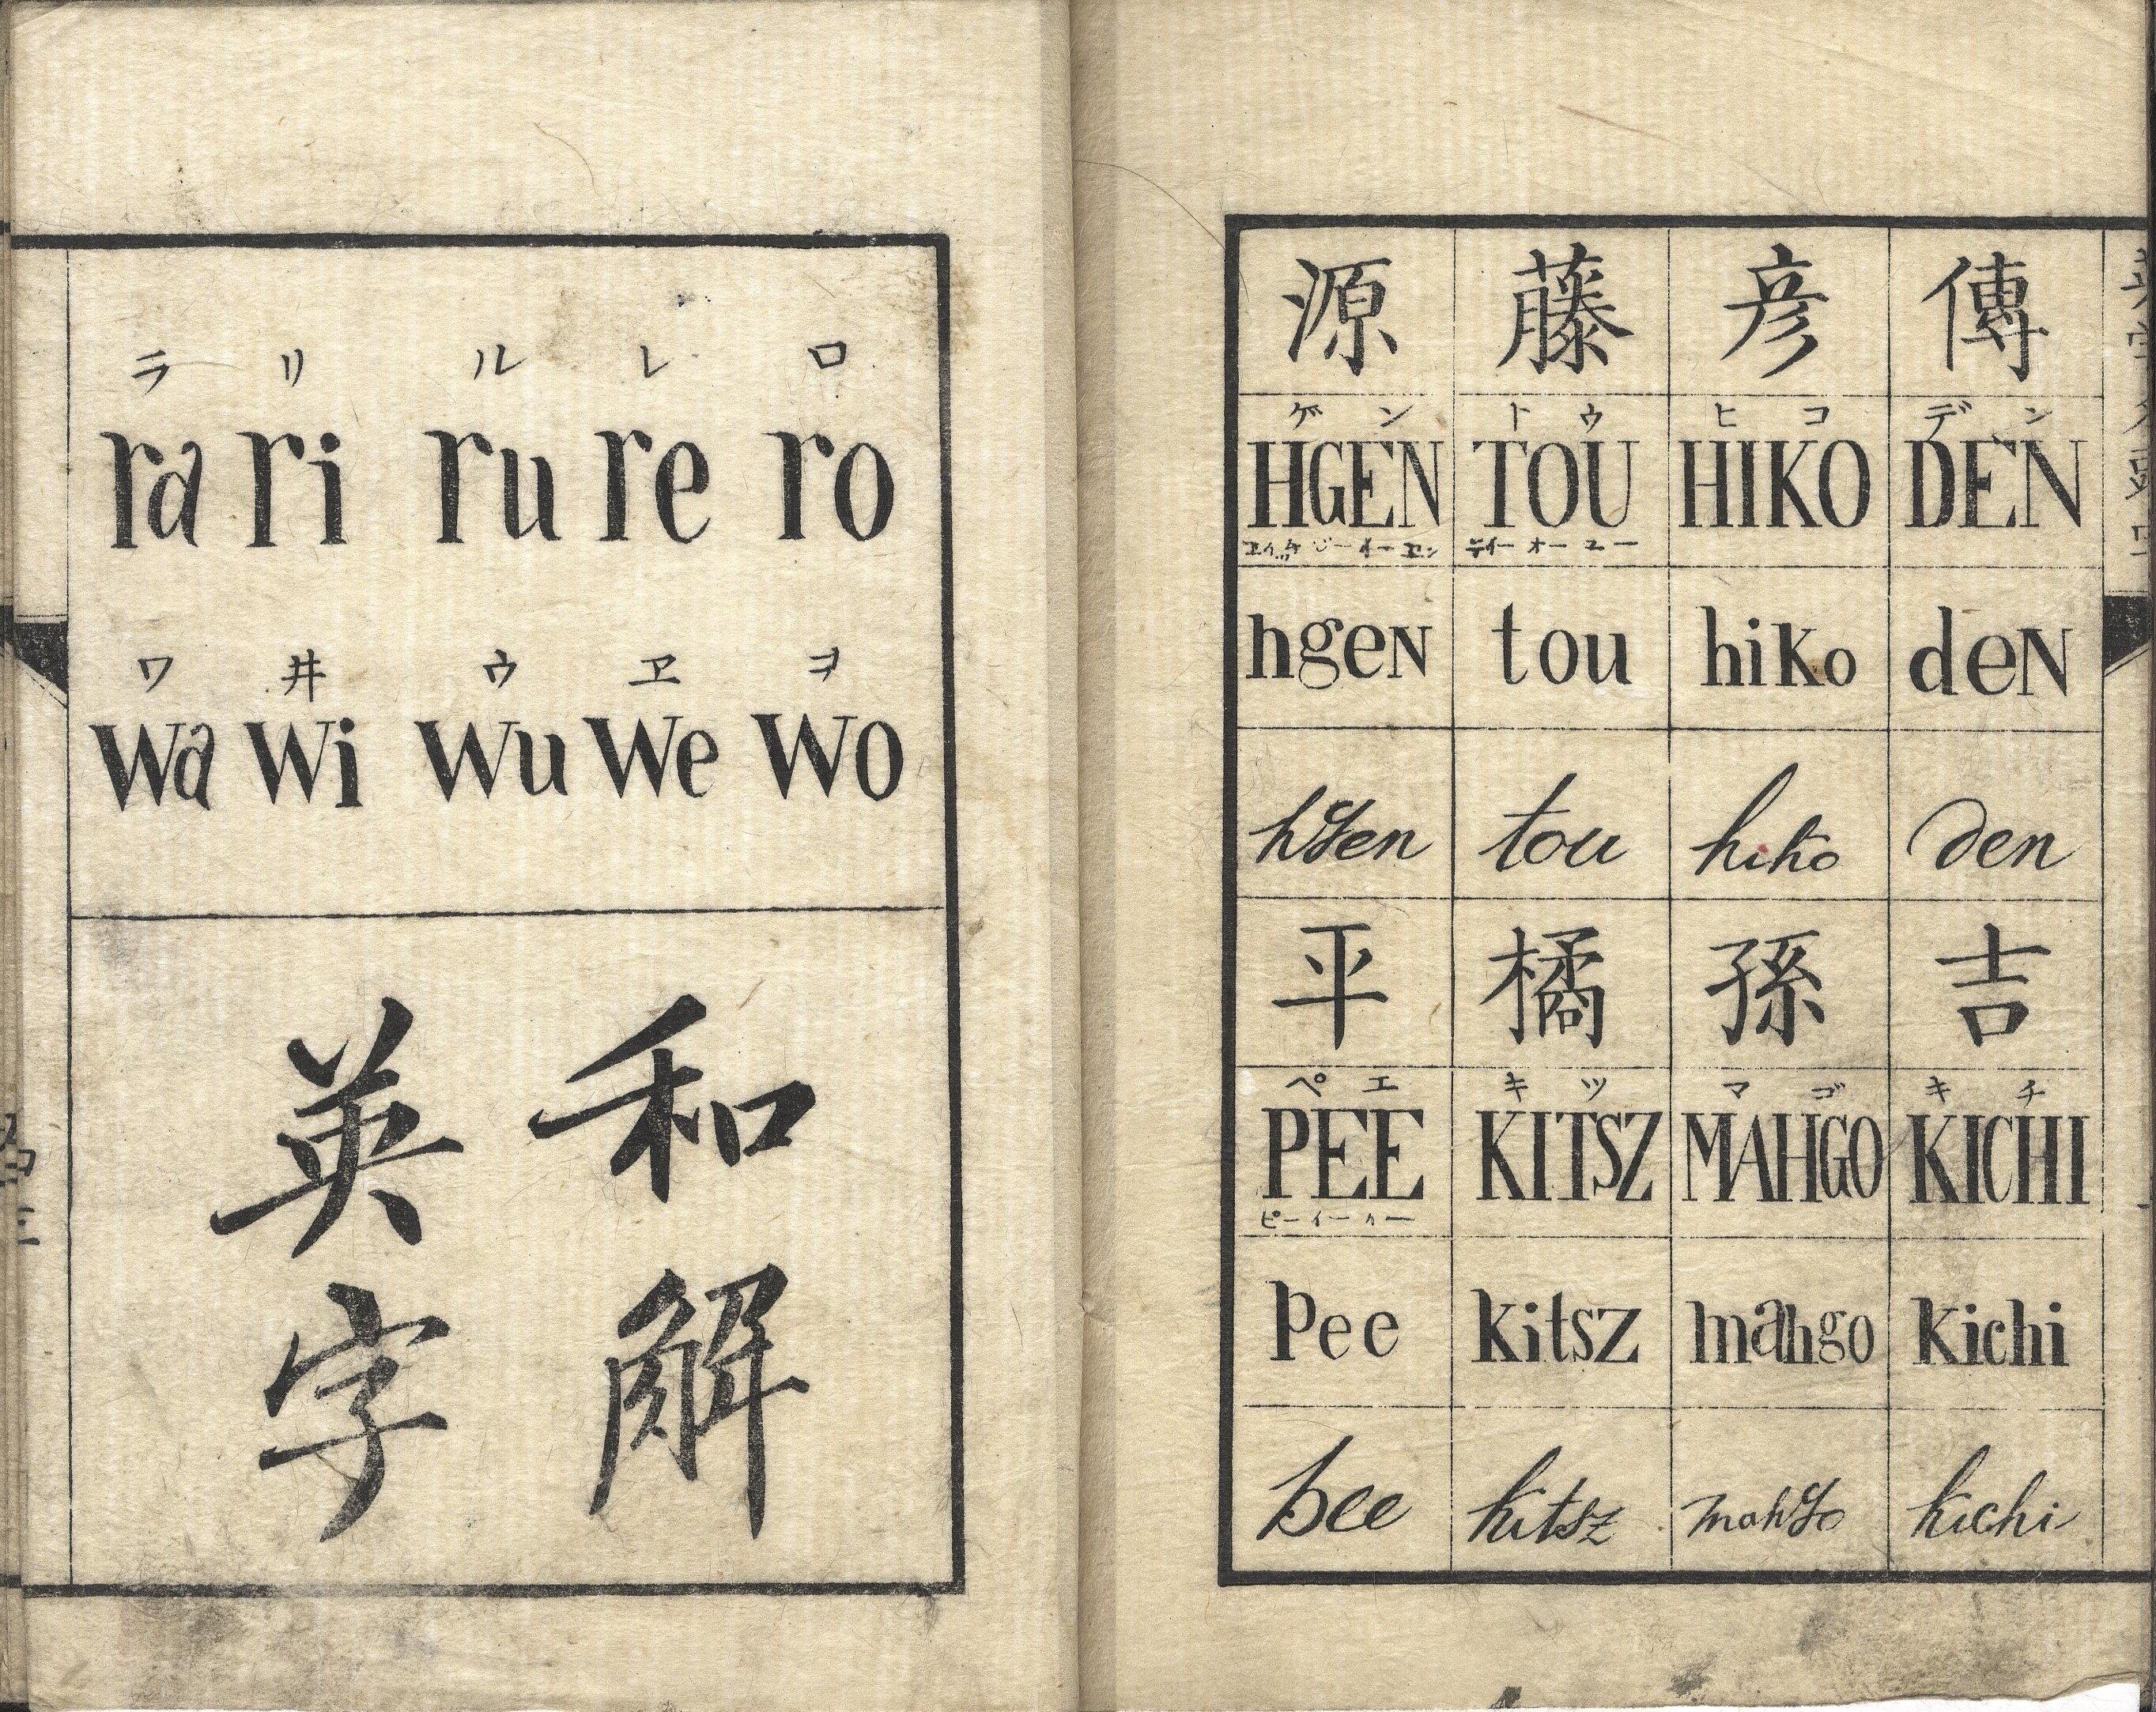 ラ リ ル レ ロ
ra ri ru re ro
ワ 井 ウ ヱ ヲ
wa wi wu we wo
和解
英字
源 藤 彦 傳
ゲン トウ ヒコ デン
HGEN TOU HIKO DEN
エイチ ジー イー エン ティー オー ユー
hgeN tou hiKo deN
hgen tou hiko den
平 橘 孫 吉
ペエ キツ マゴ キチ
PEE KITSZ MAHGO KICHI
ピー イー イー
Pee Kitsz mahgo Kichi
pee kitsz mahgo kichi